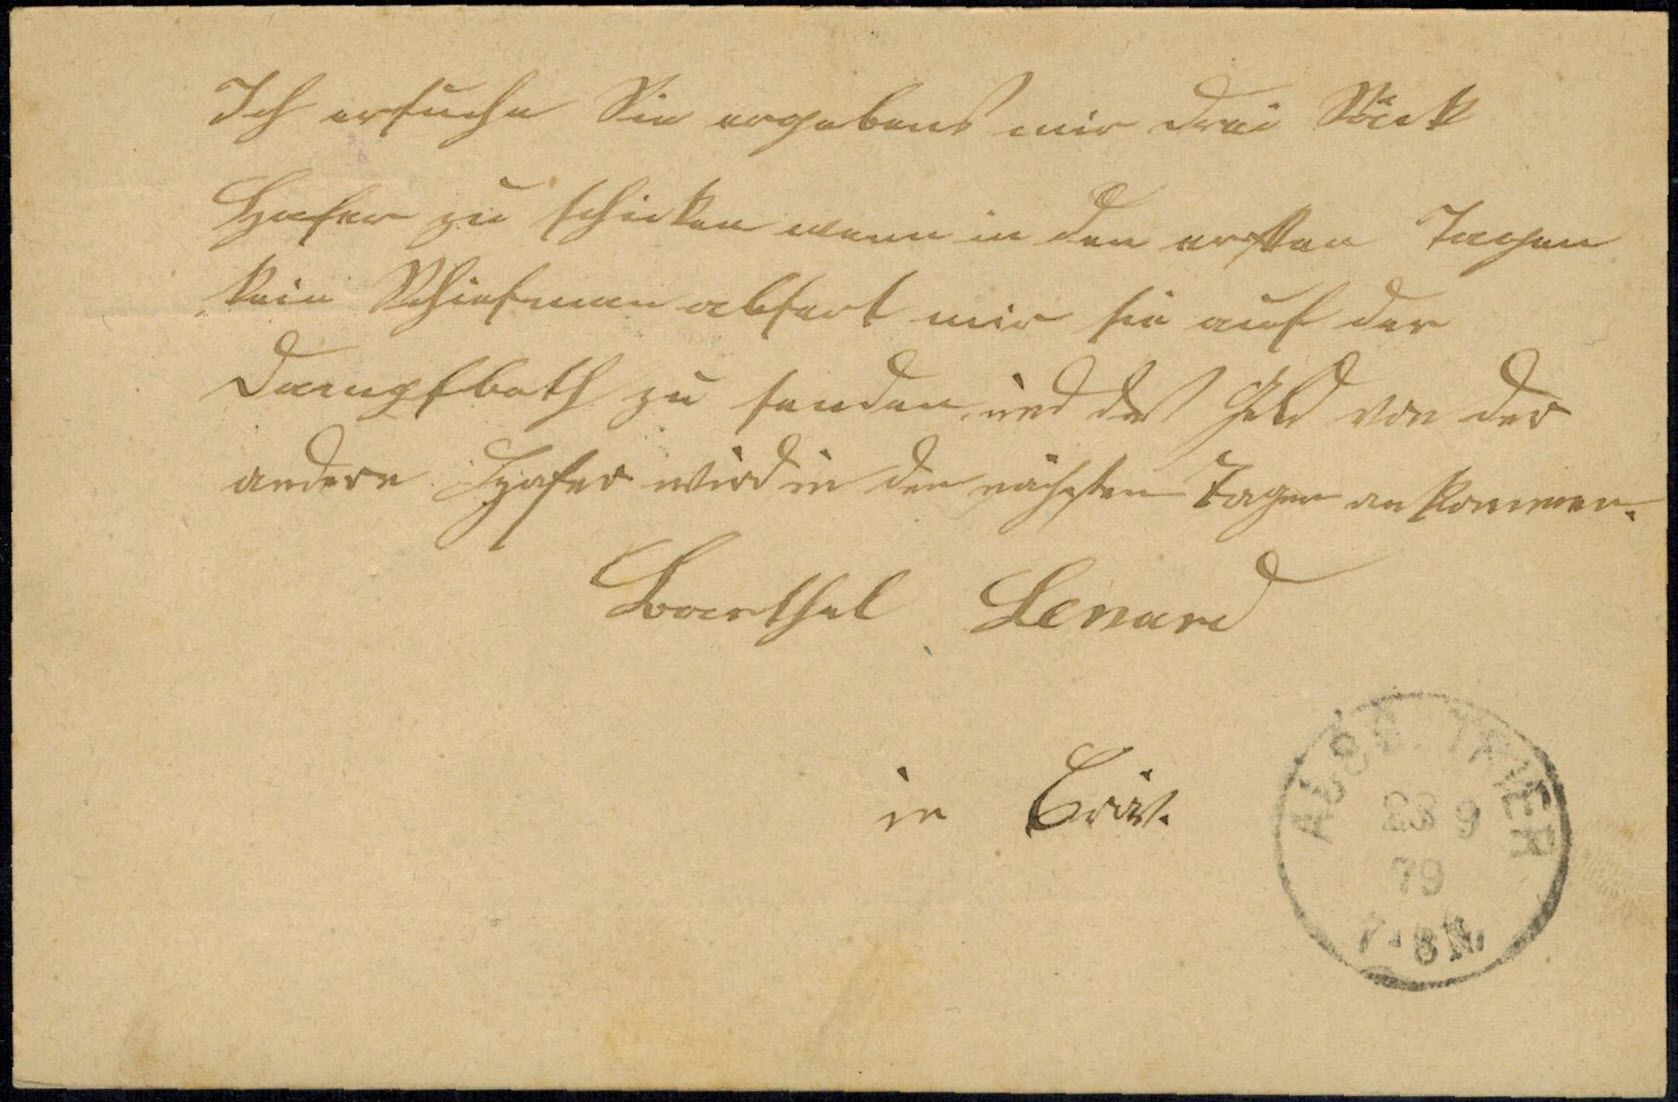 Ich ersuche Sie ergebens mir drei Säck
Hafer zu schicken wenn in den ersten Tagen
kein Schiefman abfert mir sie auf der
Dampfboth zu senden und das Geld von der
andern Hafer wird in den nächsten Tagen ankommen.
Barthel Lenard
in
AUSG. TRIER
23 9
79
7-8N.